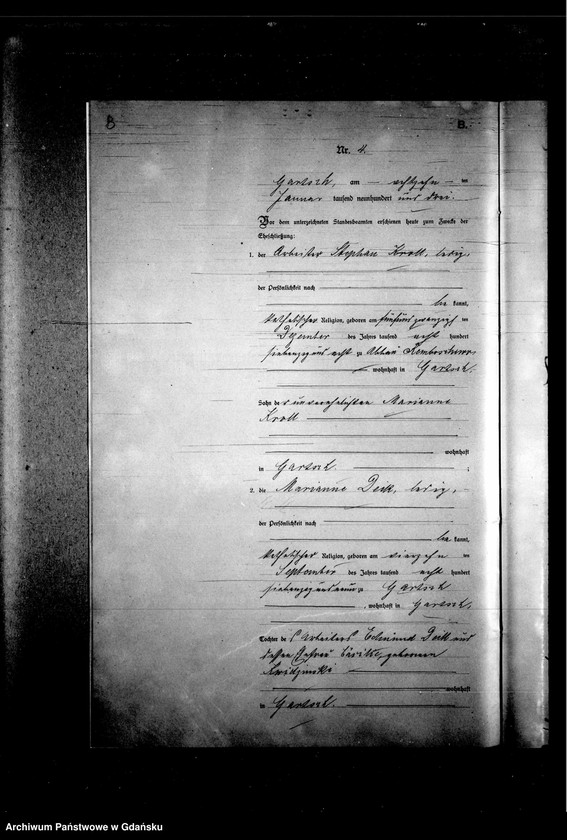 B
B.
Nr. 4.
Gartsch, am achtzehnten
Januar tausend neunhundert und drei.
Vor dem unterzeichneten Standesbeamten erschienen heute zum Zwecke der
Eheschließung:
1. der Arbeiter Stephan Kroll, ledig,
der Persönlichkeit nach
be kannt,
katholischer Religion, geboren am fünfundzwanzigsten
Dezember des Jahres tausend acht hundert
siebenzig und acht zu Abbau
wohnhaft in Gartsch.
Sohn der unverehelichten Marianna
Kroll
wohnhaft
in Gartsch. ;
2. die Marianna Deck, ledig,
der Persönlichkeit nach
be kannt,
katholischer Religion, geboren am vierzehnten
September des Jahres tausend acht hundert
siebenzig und neun zu Gartsch
, wohnhaft in Gartsch.
Tochter des Arbeiters Edmund Deck und
dessen Ehefrau geborenen
wohnhaft
in Gartsch.
Archiwum Państwowe w Gdańsku